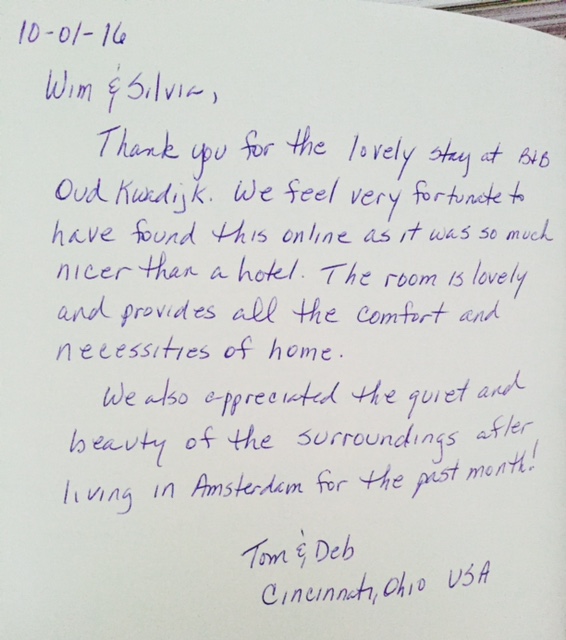 10-01-16
Wim & Silvia,
Thank you for the lovely stay at B&B
Oud Kwadijk. We feel very fortunate to
have found this online as it was so much
nicer than a hotel. The room is lovely
and provides all the comfort and
necessities of home.
We also appreciated the quiet and
beauty of the surroundings after
living in Amsterdam for the past month!
Tom & Deb
Cincinnati, Ohio USA